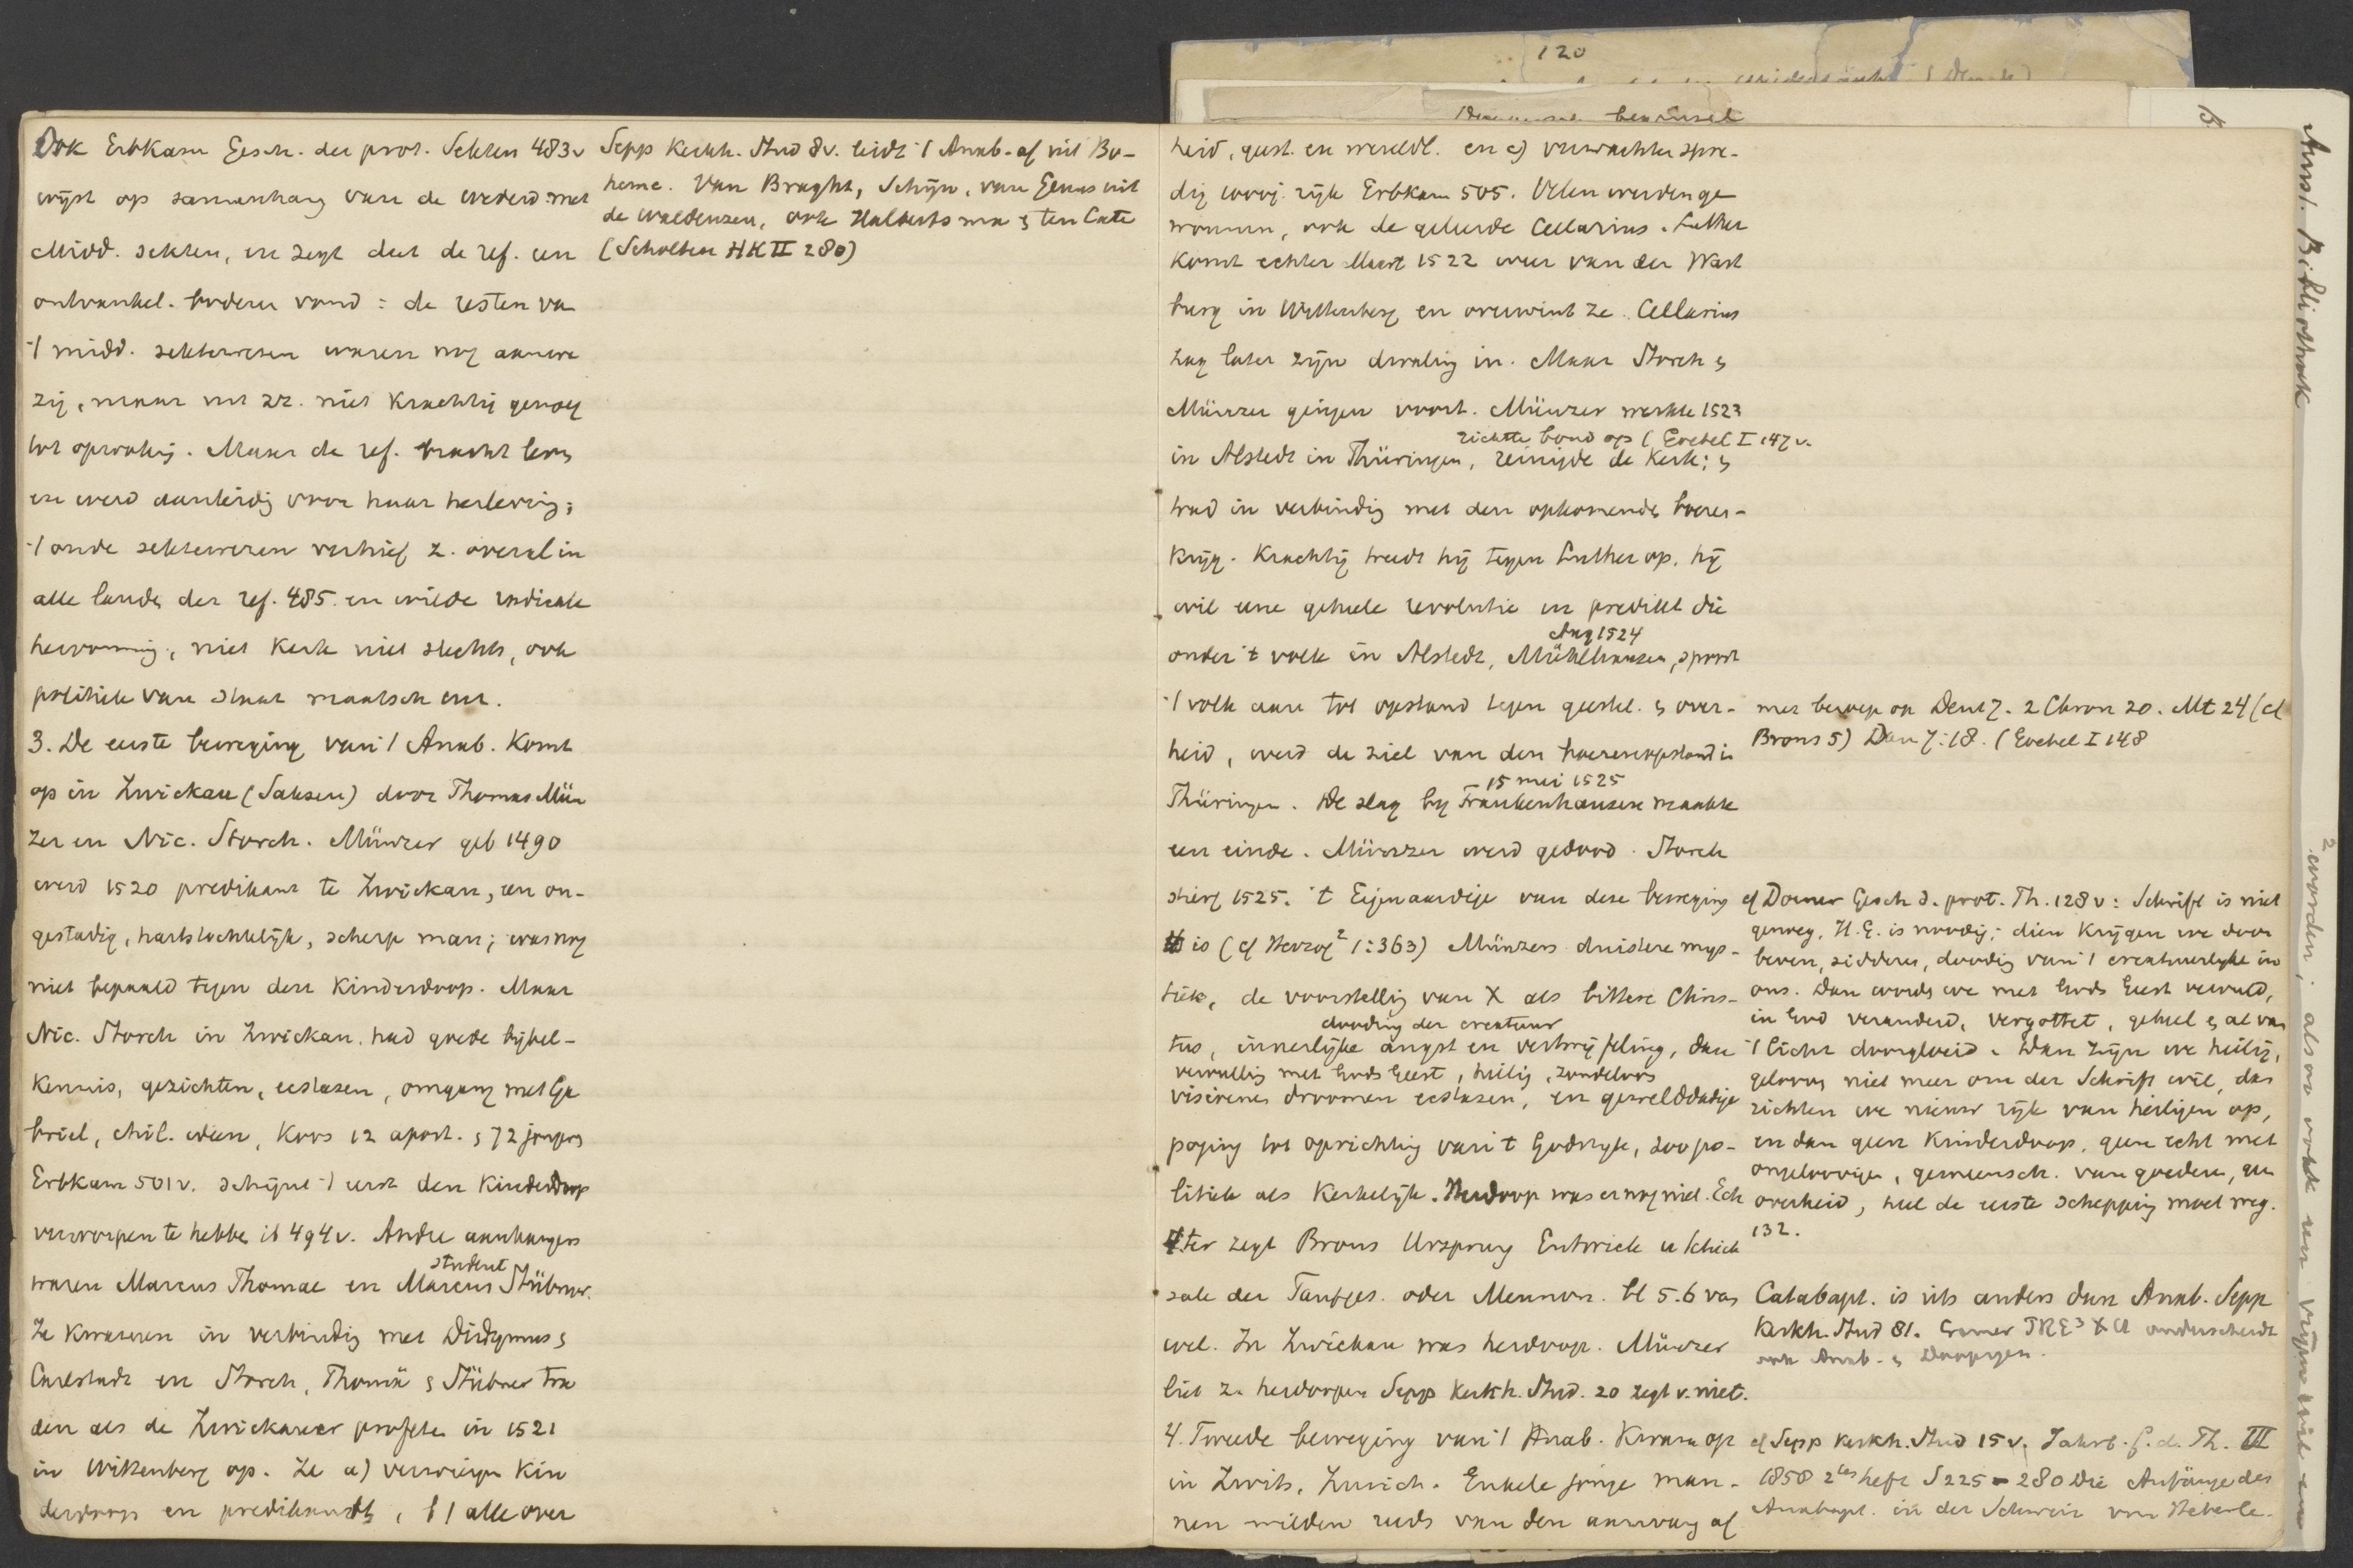 Ook Erbkam Gesch. der prot. Sekten 483v
wijst op samenhang van de wederd. met
Midd. sekten, en zegt dat de ref. een
ontvankel. bodem vond: de resten va
't midd. sektewezen waren nog aanwe
zig, maar uit zz. niet krachtig genoeg
tot opwekkg. Maar de ref. bracht leven
en werd aanleidg voor haar herlevg;
't oude sektewezen verhief z. overal in
alle landen der ref. 485. en wilde radicale
hervorming, niet Kerk niet slechts, ook
politiek van staat maatsch enz.
3. De eerste beweging van 't Anab. Komt
op in Zwickau (Saksen) door Thomas Mün
zer en Nic. Storch. Münzer geb 1490
werd 1520 predikant te Zwickau, een on-
gestadig, hartstochtelijk, scherp man; was nog
niet bepaald tegen den Kinderdoop. Maar
Nic. Storch in Zwickau, had goede bijbel-
kennis, gezichten, ecstasen, omgang met Ga
briel, chil. ideen, Koos 12 apost. & 72 jongers
Erbkam 501v. schijnt 't eerst den Kinderdoop
verworpen te hebben ib 494v. Andre aanhangers
student
waren Marcus Thomae en Marcus Stübner.
Ze kwamen in verbindig met Didymus &
Carlstadt en Storch, Thomä & Stübner tra
den als de Zwickauer profeten in 1521
in Wittenberg op. Ze a) verwierpen Kin
derdoop en predikambt, b) alle over
Sepp Kerkh. Stud 8v. leidt 't Anab. af uit Bo-
heme. Van Braght, Schijn, van Gents uit
de Waldenzen, ook Halbertsma & ten Cate
(Scholten HK II 280)
120
heid, geest. en wereldl. en c) verwachten spoe-
dig 1000j. rijk Erbkam 505. Velen werden ge
wonnen, ook de geleerde Cellarius. Luther
komt echter Maart 1522 weer van der Wart
burg in Wittenberg en overwint ze. Cellarius
zag later zijn dwaling in. Maar Storch &
Münzer gingen voort. Münzer werkte 1523
richtte bond op (Goebel I 147v.
in Alstedt in Thüringen, reinigde de kerk; &
trad in verbindig met den opkomenden boeren-
krijg. Krachtig treedt hij tegen Luther op, hij
wil eene geheele revolutie en predikt die
Aug 1524
onder 't volk in Alstedt, Mühlhausen, spoort
't volk aan tot opstand tegen geestel. & over-
heid, werd de ziel van den boerenopstand in
15 mei 1525
Thüringen. De slag bij Frankenhausen maakte
een einde. Münzer werd gedood. Storch
stierf 1525. 't Eigenaardige van deze beweging
is (cf Herzog² 1:363) Münzers duistere mys-
tiek, de voorstellig van X als bittere Chris-
dooding der creatuur
tus, innerlijke angst en vertwijfeling, dan
vervullig met Gods Geest, heilig, zondeloos
visioenen droomen ecstasen, en gewelddadige
poging tot oprichtig van 't Godsrijk, zoo po-
litiek als Kerkelijk. Herdoop was er nog niet. Ech
ter zegt Brons Ursprung Entwick u Schick
sale der Taufges. oder Mennon. bl 5.6 van
wel. In Zwickau was herdoop. Münzer
liet z. herdoopen Sepp Kerkh. Stud. 20 zegt v. niet.
4. Tweede beweging van 't Anab. Kwam op
in Zwits. Zurich. Enkele jonge man-
nen wilden reeds van den aanvang af
met beroep op Deut 7. 2 Chron 20. Mt 24 (cf
Brons 5) Dan 7:18. (Goebel I 148
cf Dorner Gesch d. prot. Th. 128v: Schrift is niet
genoeg, H.G. is noodig; dien krijgen we door
beven, sidderen, doodig van 't creatuurlijke in
ons. Dan worden we met Gods Geest vervuld,
in God veranderd, vergottet, geheel & al van
't licht doorgloeid. Dan zijn we heilig,
gelooven niet meer om der Schrift wil, dan
richten we nieuw rijk van heiligen op,
en dan geen Kinderdoop, geen echt met
ongeloovigen, gemeensch. van goederen, geen
overheid, heel de eerste schepping moet weg.
132.
Catabapt. is iets anders dan Anab. Sepp
Kerkh. Stud 81. Cramer PRE³ XII onderscheidt
ook Anab. & Doopsgez.
cf Sepp Kerkh. Stud 15v. Jahrb. f. d. Th. III
1858 2tes heft S 225-280 Die Anfänge des
Anabapt. in der Schweiz von Heberle.
15
Amst. Bibliotheek
worden; alsoo ook un vrijen wil en